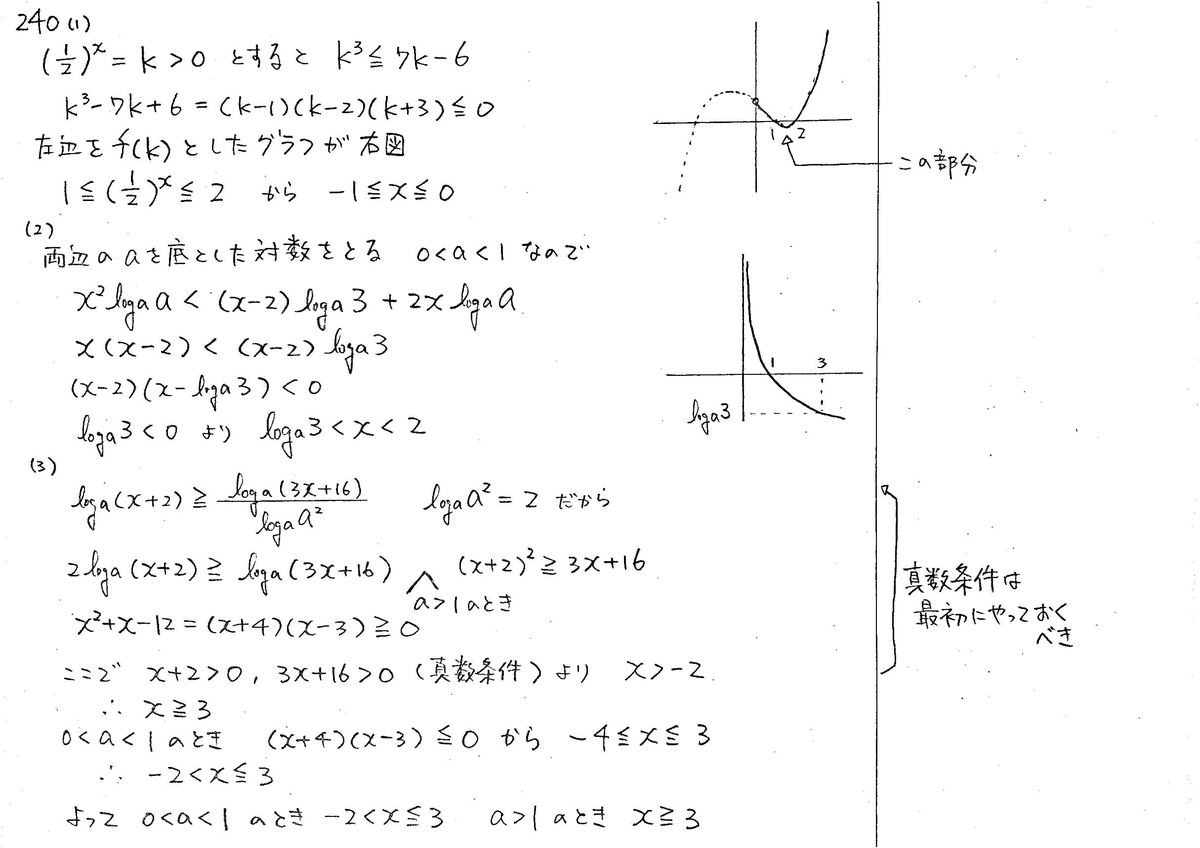 240(1)
(1/2)^x = k > 0 とすると k³ ≦ 7k-6
k³-7k+6 = (k-1)(k-2)(k+3) ≦ 0
左辺を f(k) としたグラフが右図
1 ≦ (1/2)^x ≦ 2 から -1 ≦ x ≦ 0
1 2
この部分
(2)
両辺の a を底とした対数をとる 0<a<1 なので
x² log_a a < (x-2) log_a 3 + 2x log_a a
x(x-2) < (x-2) log_a 3
(x-2)(x-log_a 3) < 0
log_a 3 < 0 より log_a 3 < x < 2
1 3
log_a 3
(3)
log_a(x+2) ≧ log_a(3x+16)/log_a a² log_a a² = 2 だから
2log_a(x+2) ≧ log_a(3x+16) (x+2)² ≧ 3x+16
a>1のとき
x²+x-12 = (x+4)(x-3) ≧ 0
ここで x+2>0, 3x+16>0 (真数条件) より x>-2
∴ x ≧ 3
0<a<1のとき (x+4)(x-3) ≦ 0 から -4 ≦ x ≦ 3
∴ -2 < x ≦ 3
よって 0<a<1 のとき -2<x≦3 a>1 のとき x≧3
真数条件は
最初にやっておく
べき